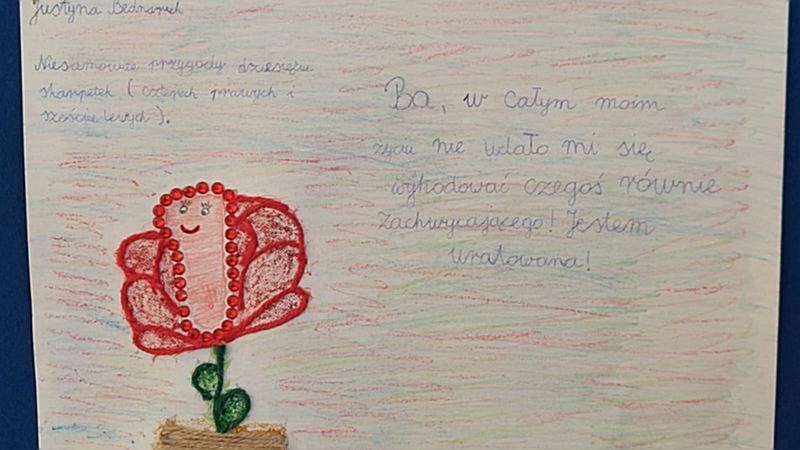 Justyna Bednarek
Niesamowite przygody dziesięciu
skarpetek (czterech prawych i
sześciu lewych).
Ba, w całym moim
życiu nie udało mi się
wyhodować czegoś równie
zachwycającego! Jestem
uratowana!